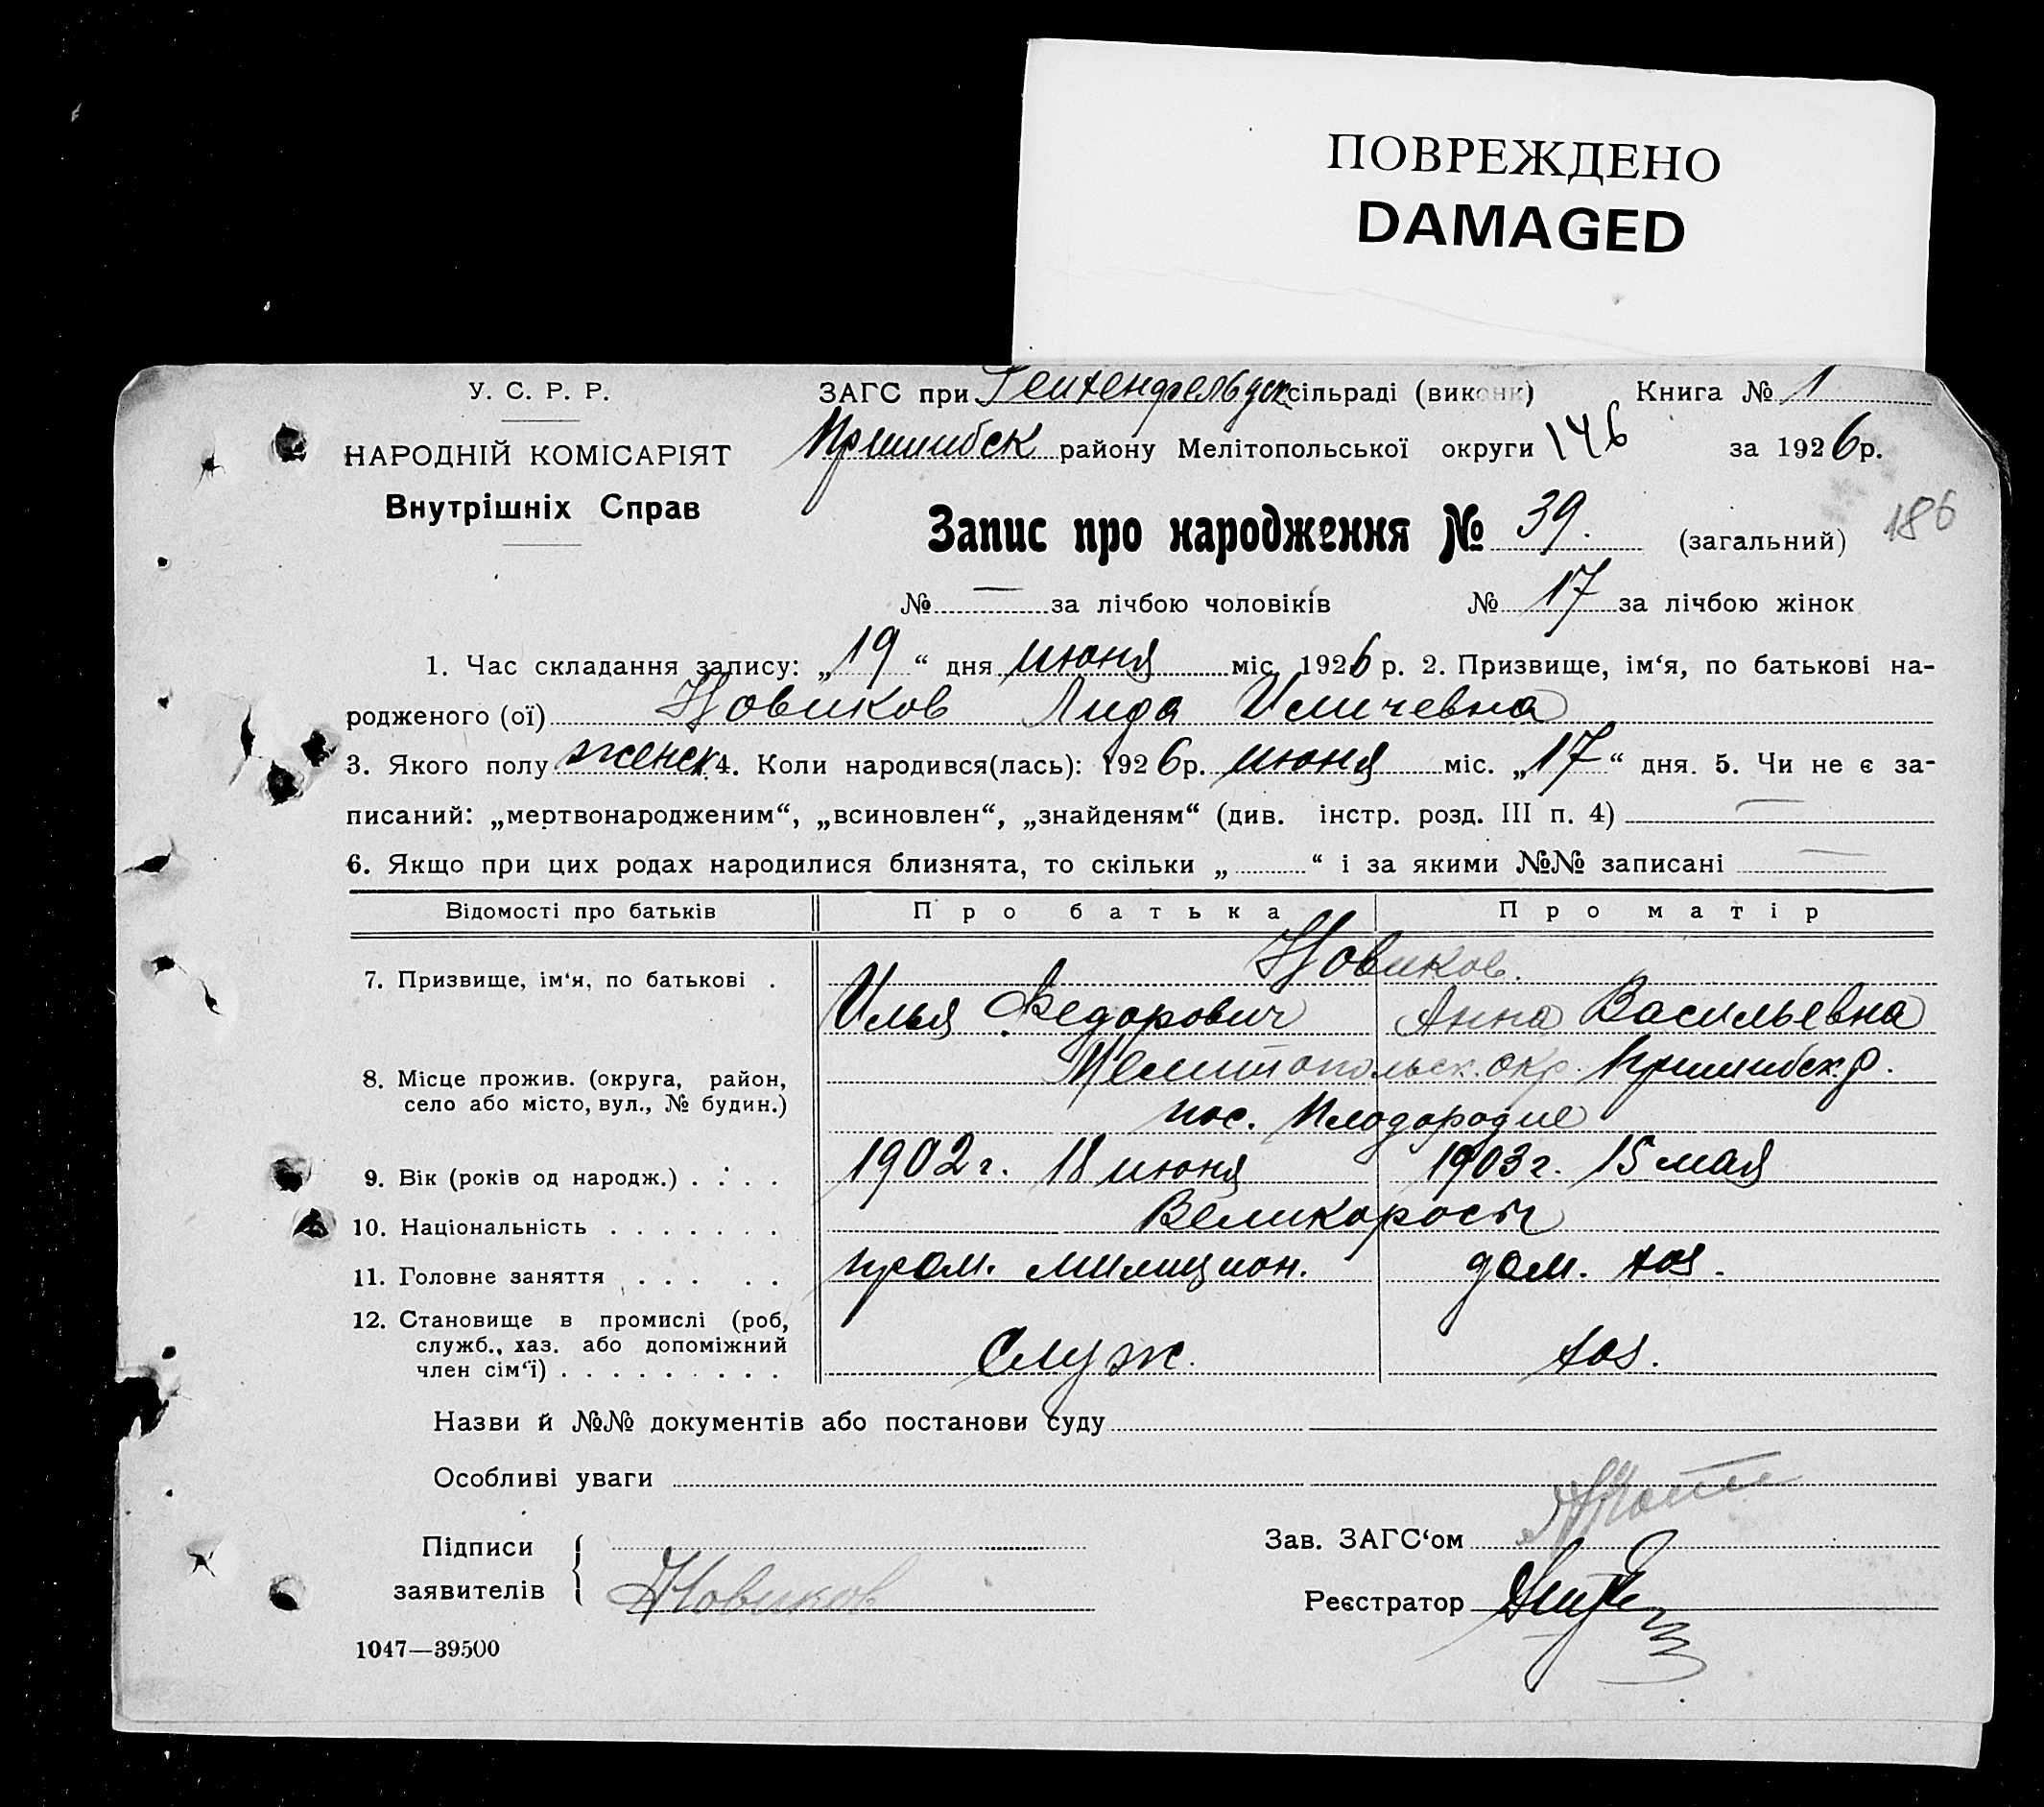 ПОВРЕЖДЕНО
DAMAGED
У. С. Р. Р.
НАРОДНІЙ КОМІСАРІЯТ
Внутрішніх Справ
ЗАГС при Гейхендфельдск сільраді (виконк) Книга № 1
Пришибск району Мелітопольської округи 146 за 1926 р.
Запис про народження № 39. (загальний) 186
№ — за лічбою чоловіків № 17 за лічбою жінок
1. Час складання запису: „19“ дня июня міс. 1926 р. 2. Призвище, ім‘я, по батькові на-
родженого (ої) Новиков Лида Иличевна
3. Якого полу женск. 4. Коли народився(лась): 1926 р. июня міс. „17“ дня. 5. Чи не є за-
писаний: „мертвонародженим“, „всиновлен“, „знайденям“ (див. інстр. розд. III п. 4) —
6. Якщо при цих родах народилися близнята, то скільки „ “ і за якими №№ записані —
Відомості про батьків Про батька Про матір
Новиков.
7. Призвище, ім‘я, по батькові .
Илья Федорович Анна Васильевна
8. Місце прожив. (округа, район,
село або місто, вул., № будин.)
Мелитопольск. окр. Пришибск. р.
пос. Плодородие
9. Вік (років од народж.) . . . . 1902 г. 18 июня 1903 г. 15 мая
10. Національність . . . . . . . Великоросы
11. Головне заняття . . . . . пром. милицион. дом. хоз.
12. Становище в промислі (роб,
служб., хаз. або допоміжний
член сім‘ї) . . . . . . . . . Служ. хоз.
Назви й №№ документів або постанови суду
Особливі уваги
Підписи
заявителів
Новиков
Зав. ЗАГС‘ом
Реєстратор
1047—39500